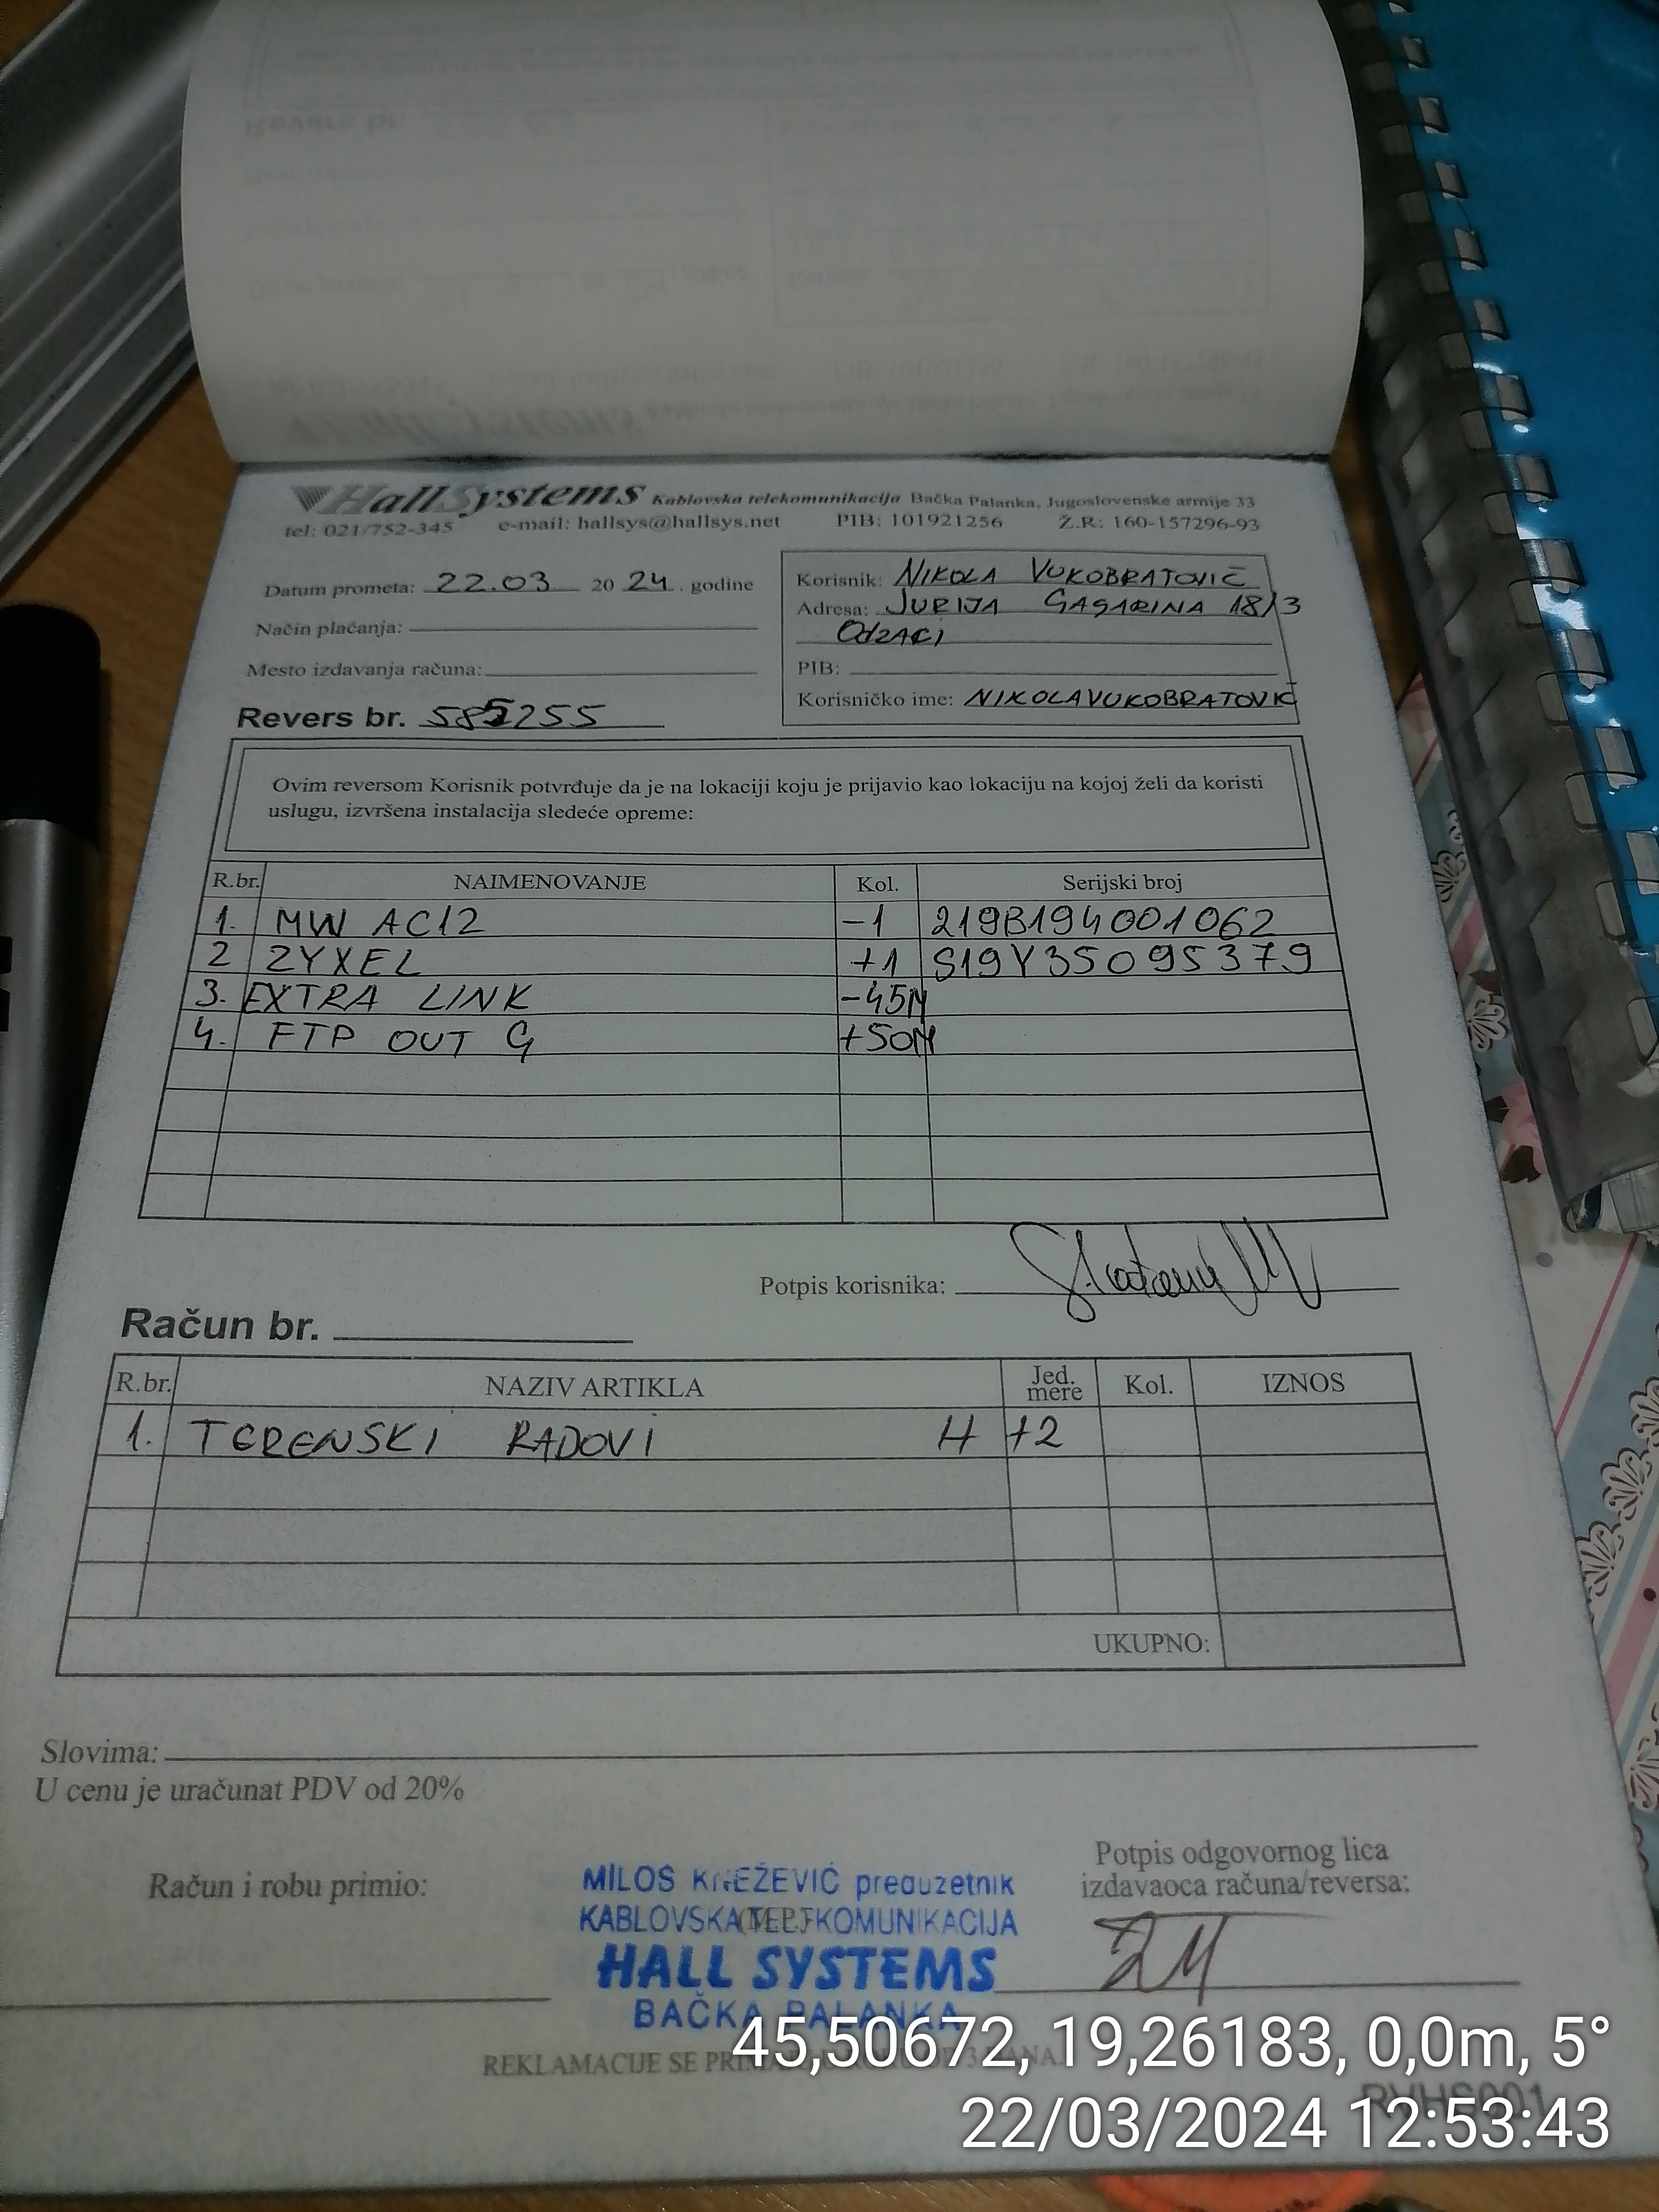 HallSystems Kablovska telekomunikacija Bačka Palanka, Jugoslovenske armije 33
tel: 021/752-345 e-mail: hallsys@hallsys.net PIB: 101921256 Ž.R: 160-157296-93
Datum prometa: 22.03 20 24. godine
Način plaćanja:
Mesto izdavanja računa:
Revers br. 585255
Korisnik: NIKOLA VUKOBRATOVIĆ
Adresa: JURIJA GAGARINA 18/3
OdZACI
PIB:
Korisničko ime: NIKOLAVUKOBRATOVIĆ
Ovim reversom Korisnik potvrđuje da je na lokaciji koju je prijavio kao lokaciju na kojoj želi da koristi
uslugu, izvršena instalacija sledeće opreme:
R.br. NAIMENOVANJE Kol. Serijski broj
1. MW AC12 -1 219B194001062
2 ZYXEL +1 S19Y35095379
3. EXTRA LINK -45M
4. FTP OUT G +50M
Potpis korisnika:
Račun br.
R.br. NAZIV ARTIKLA Jed. mere Kol. IZNOS
1. TERENSKI RADOVI H +2
UKUPNO:
Slovima:
U cenu je uračunat PDV od 20%
Račun i robu primio:
MILOS KNEŽEVIĆ preduzetnik
KABLOVSKA TELEKOMUNIKACIJA
HALL SYSTEMS
BAČKA PALANKA
(M.P.)
Potpis odgovornog lica
izdavaoca računa/reversa:
REKLAMACIJE SE
RVHS001
45,50672, 19,26183, 0,0m, 5°
22/03/2024 12:53:43